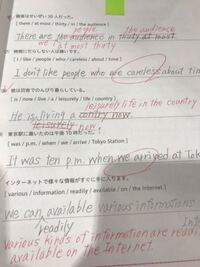 聴衆はせいぜい30人だった。
[ there / at most / thirty / in / the audience ]
people the audience
There are the audience in thirty at most
we at most thirty
時間にだらしない人は嫌いです。
[ I / like / people / who / careless / about / time ]
I don't like people who are careless about tim
彼は田舎でのんびり暮らしている。
[ is / now / live / a / leisurely / life / country ]
leisurely life in the country
He is living a contry now.
leisurely now!
東京駅に着いたのは午後10時だった。
[ was / p.m. / when / we / arrive / Tokyo Station ]
It was ten p.m. when we arrived at Tok
インターネットで様々な情報がすぐに手に入ります。
[ various / information / readily / available / on / the Internet ]
we can available various informations
readily
Inte
Various kinds of information are readi
available on the Internet.